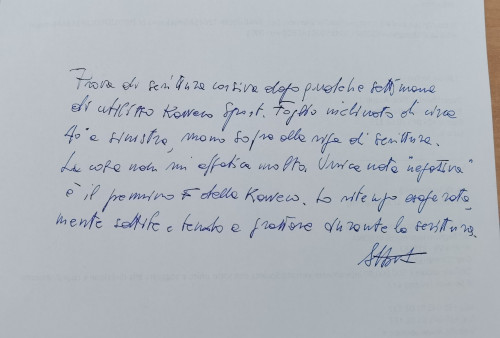 Prova di scrittura corsiva dopo qualche settimana
di utilizzo Kaweco Sport. Foglio inclinato di circa
40° a sinistra, mano sopra alla riga di scrittura.
La cosa non mi affatica molto. Unica nota "negativa"
è il pennino F della Kaweco. Lo ritengo esagerata
mente sottile e tendo a grattare durante la scrittura.